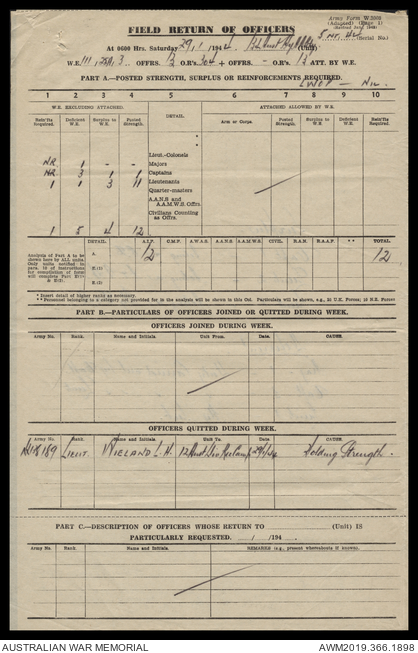 Army Form W 3008
(Adapted) (Page 1)
(Revised June 1943)
FIELD RETURN OF OFFICERS
At 0600 Hrs. Saturday 29/1/1944. (Unit) (Serial No.)
W.E. OFFRS. 12 O.R's 304 + OFFRS. - O.R's 12 ATT. BY W.E.
PART A.—POSTED STRENGTH, SURPLUS OR REINFORCEMENTS REQUIRED.
LWOP — Nil
1 2 3 4 5 6 7 8 9 10
W.E. EXCLUDING ATTACHED. DETAIL. ATTACHED ALLOWED BY W.E.
Reift's Required. Deficient W.E. Surplus to W.E. Posted Strength. Arm or Corps. Posted Strength. Surplus to W.E. Deficient W.E. Reift's Required.
Lieut.-Colonels
NR 1 - - Majors
NR 3 1 1 Captains
1 1 3 11 Lieutenants
Quarter-masters
A.A.N.S and A.A.M.W.S Offrs.
Civilians Counting as Offrs.
1 5 4 12
Analysis of Part A to be shown here by ALL units. Only units notified in para. 19 of instructions for compilation of total will complete Part E(1) & E(2).
DETAIL. A.I.F. C.M.F. A.W.A.S. A.A.N.S. A.A.M.W.S. CIVIL. R.A.N. R.A.A.F. ** TOTAL
A. 12 12
E.(1)
E.(2)
* Insert detail of higher ranks as necessary.
** Personnel belonging to a category not provided for in the analysis will be shown in this Col. Particulars will be shewn, e.g., 10 U.S. Forces; 10 N.Z. Forces
PART B.—PARTICULARS OF OFFICERS JOINED OR QUITTED DURING WEEK.
OFFICERS JOINED DURING WEEK.
Army No. Rank. Name and Initials. Unit From. Date. CAUSE.
OFFICERS QUITTED DURING WEEK.
Army No. Rank. Name and Initials. Unit To. Date. CAUSE.
Lieut. WIELAND L.H. 29/1/44 Holding Strength.
PART C.—DESCRIPTION OF OFFICERS WHOSE RETURN TO (Unit) IS
PARTICULARLY REQUESTED. / /194
Army No. Rank. Name and Initials. REMARKS (e.g., present whereabouts if known).
AUSTRALIAN WAR MEMORIAL AWM2019.366.1898